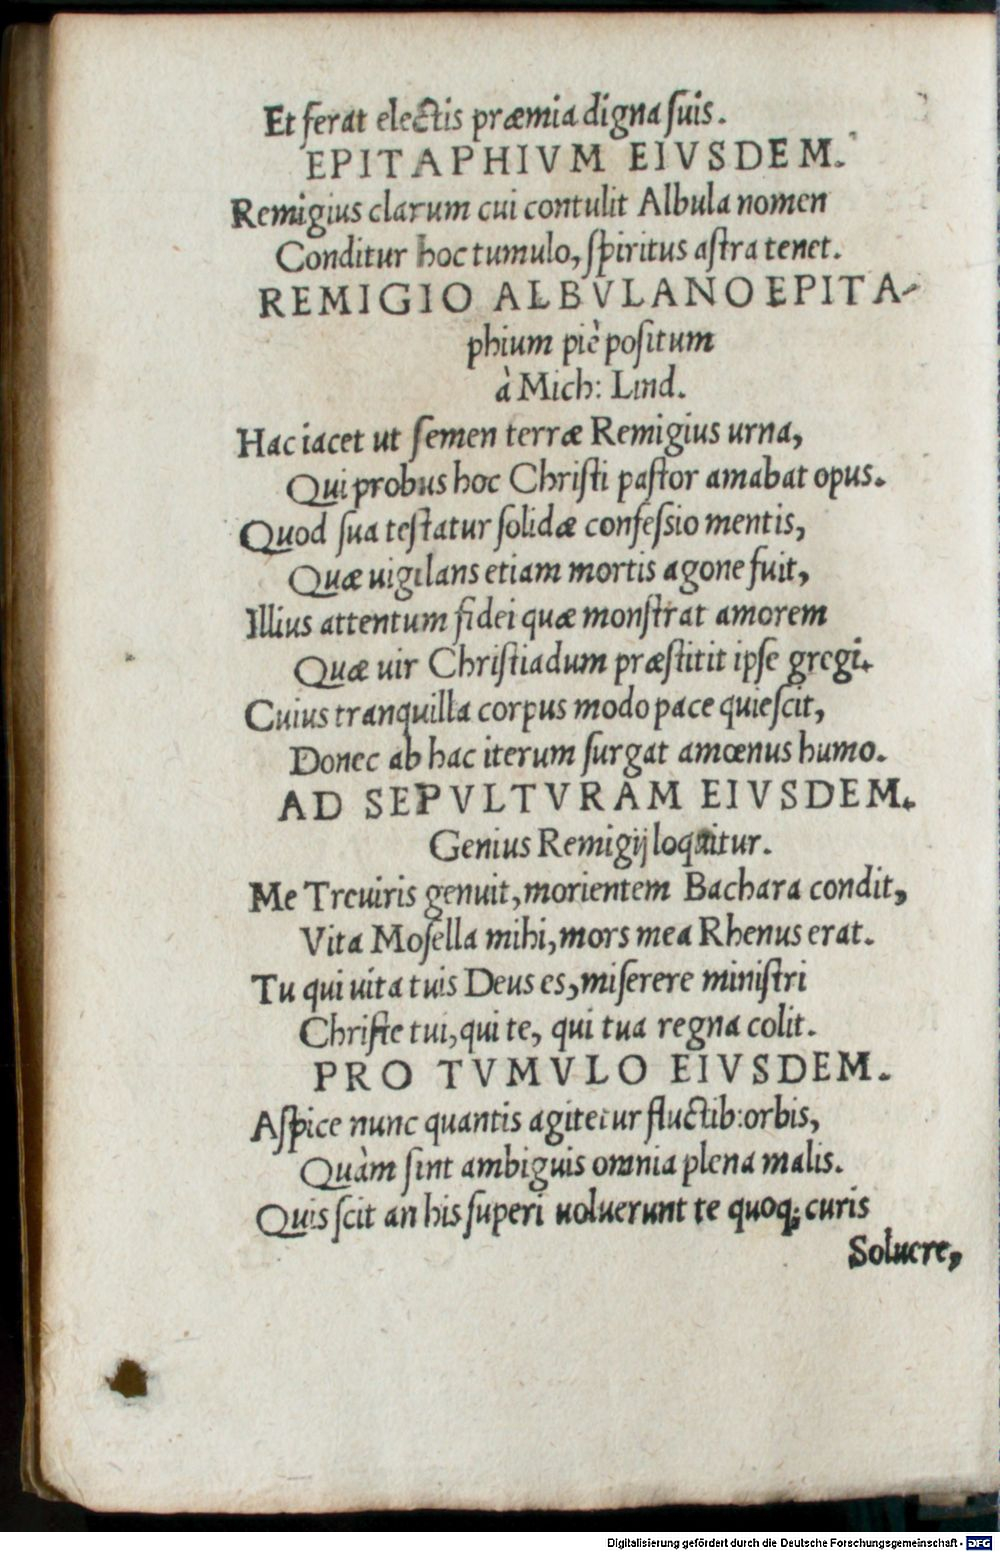 Et ferat electis præmia digna ſuis.
EPITAPHIVM EIVSDEM.
Remigius clarum cui contulit Albula nomen
Conditur hoc tumulo, ſpiritus aſtra tenet.
REMIGIO ALBVLANO EPITA-
phium piè poſitum
à Mich: Lind.
Hac iacet ut ſemen terræ Remigius urna,
Qui probus hoc Chriſti paſtor amabat opus.
Quod ſua teſtatur ſolidæ confeſsio mentis,
Quæ uigilans etiam mortis agone fuit,
Illius attentum fidei quæ monſtrat amorem
Quæ uir Chriſtiadum præſtitit ipſe gregi.
Cuius tranquilla corpus modo pace quieſcit,
Donec ab hac iterum ſurgat amœnus humo.
AD SEPVLTVRAM EIVSDEM.
Genius Remigij loquitur.
Me Treuiris genuit, morientem Bachara condit,
Vita Moſella mihi, mors mea Rhenus erat.
Tu qui uita tuis Deus es, miſerere miniſtri
Chriſte tui, qui te, qui tua regna colit.
PRO TVMVLO EIVSDEM.
Aſpice nunc quantis agitetur fluctib: orbis,
Quàm ſint ambiguis omnia plena malis.
Quis ſcit an his ſuperi uoluerunt te quoq; curis
Soluere,
Digitalisierung gefördert durch die Deutsche Forschungsgemeinschaft - DFG